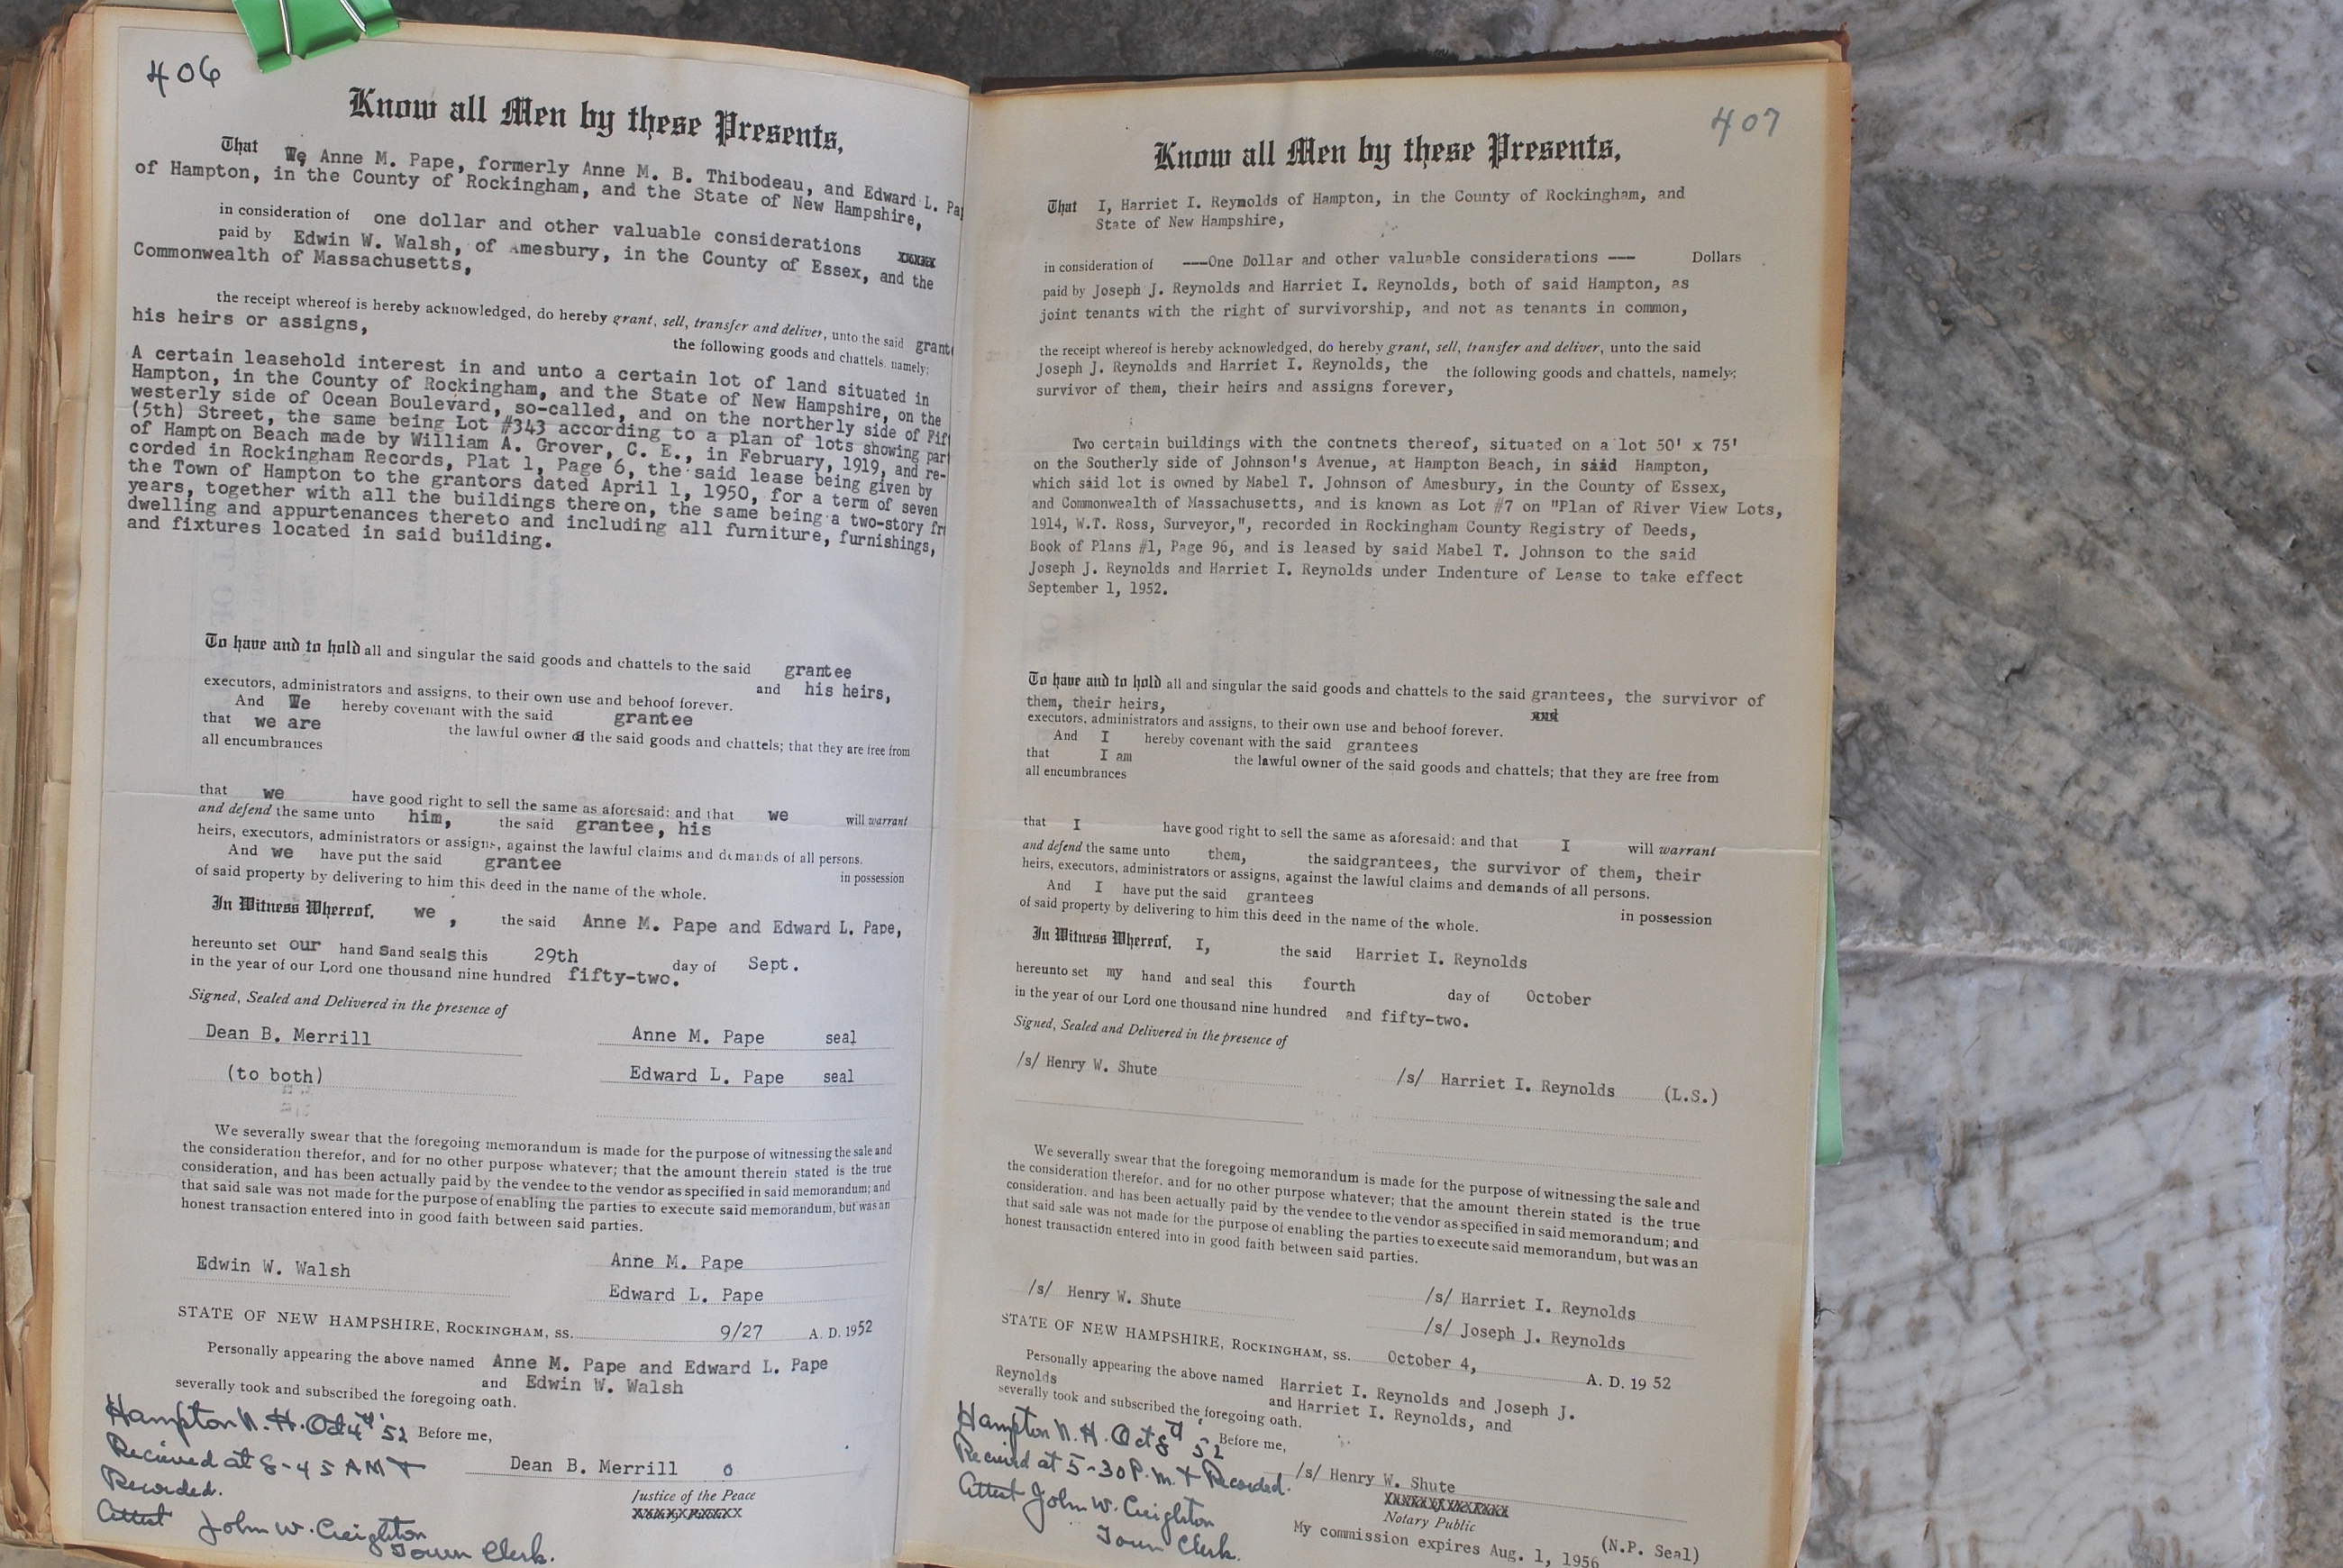 406
Know all Men by these Presents,
That We, Anne M. Pape, formerly Anne M. B. Thibodeau, and Edward L. Pa
of Hampton, in the County of Rockingham, and the State of New Hampshire,
in consideration of one dollar and other valuable considerations xxxxx
paid by Edwin W. Walsh, of Amesbury, in the County of Essex, and the
Commonwealth of Massachusetts,
the receipt whereof is hereby acknowledged, do hereby grant, sell, transfer and deliver, unto the said grant
his heirs or assigns, the following goods and chattels, namely:
A certain leasehold interest in and unto a certain lot of land situated in
Hampton, in the County of Rockingham, and the State of New Hampshire, on the
westerly side of Ocean Boulevard, so-called, and on the northerly side of Fif
(5th) Street, the same being Lot #343 according to a plan of lots showing par
of Hampton Beach made by William A. Grover, C. E., in February, 1919, and re-
corded in Rockingham Records, Plat 1, Page 6, the said lease being given by
the Town of Hampton to the grantors dated April 1, 1950, for a term of seven
years, together with all the buildings thereon, the same being a two-story fr
dwelling and appurtenances thereto and including all furniture, furnishings,
and fixtures located in said building.
To have and to hold all and singular the said goods and chattels to the said grantee
and his heirs,
executors, administrators and assigns, to their own use and behoof forever.
And We hereby covenant with the said grantee
that we are the lawful owner s the said goods and chattels; that they are free from
all encumbrances
that we have good right to sell the same as aforesaid: and that we will warrant
and defend the same unto him, the said grantee, his
heirs, executors, administrators or assigns, against the lawful claims and demands of all persons.
And we have put the said grantee in possession
of said property by delivering to him this deed in the name of the whole.
In Witness Whereof, we , the said Anne M. Pape and Edward L. Pape,
hereunto set our hand sand seals this 29th day of Sept.
in the year of our Lord one thousand nine hundred fifty-two.
Signed, Sealed and Delivered in the presence of
Dean B. Merrill Anne M. Pape seal
(to both) Edward L. Pape seal
We severally swear that the foregoing memorandum is made for the purpose of witnessing the sale and
the consideration therefor, and for no other purpose whatever; that the amount therein stated is the true
consideration, and has been actually paid by the vendee to the vendor as specified in said memorandum; and
that said sale was not made for the purpose of enabling the parties to execute said memorandum, but was an
honest transaction entered into in good faith between said parties.
Edwin W. Walsh Anne M. Pape
Edward L. Pape
STATE OF NEW HAMPSHIRE, ROCKINGHAM, SS. 9/27 A. D. 1952
Personally appearing the above named Anne M. Pape and Edward L. Pape
and Edwin W. Walsh
severally took and subscribed the foregoing oath.
Hampton N. H. Oct 4th '52 Before me,
Recieved at 8-45 AM +
Recorded.
Dean B. Merrill
Justice of the Peace
Attest John W. Creighton
Town Clerk.
407
Know all Men by these Presents,
That I, Harriet I. Reynolds of Hampton, in the County of Rockingham, and
State of New Hampshire,
in consideration of ---One Dollar and other valuable considerations --- Dollars
paid by Joseph J. Reynolds and Harriet I. Reynolds, both of said Hampton, as
joint tenants with the right of survivorship, and not as tenants in common,
the receipt whereof is hereby acknowledged, do hereby grant, sell, transfer and deliver, unto the said
Joseph J. Reynolds and Harriet I. Reynolds, the the following goods and chattels, namely:
survivor of them, their heirs and assigns forever,
Two certain buildings with the contnets thereof, situated on a lot 50' x 75'
on the Southerly side of Johnson's Avenue, at Hampton Beach, in said Hampton,
which said lot is owned by Mabel T. Johnson of Amesbury, in the County of Essex,
and Commonwealth of Massachusetts, and is known as Lot #7 on "Plan of River View Lots,
1914, W.T. Ross, Surveyor,", recorded in Rockingham County Registry of Deeds,
Book of Plans #1, Page 96, and is leased by said Mabel T. Johnson to the said
Joseph J. Reynolds and Harriet I. Reynolds under Indenture of Lease to take effect
September 1, 1952.
To have and to hold all and singular the said goods and chattels to the said grantees, the survivor of
them, their heirs, and
executors, administrators and assigns, to their own use and behoof forever.
And I hereby covenant with the said grantees
that I am the lawful owner of the said goods and chattels; that they are free from
all encumbrances
that I have good right to sell the same as aforesaid: and that I will warrant
and defend the same unto them, the said grantees, the survivor of them, their
heirs, executors, administrators or assigns, against the lawful claims and demands of all persons.
And I have put the said grantees in possession
of said property by delivering to him this deed in the name of the whole.
In Witness Whereof, I, the said Harriet I. Reynolds
hereunto set my hand and seal this fourth day of October
in the year of our Lord one thousand nine hundred and fifty-two.
Signed, Sealed and Delivered in the presence of
/s/ Henry W. Shute /s/ Harriet I. Reynolds (L.S.)
We severally swear that the foregoing memorandum is made for the purpose of witnessing the sale and
the consideration therefor, and for no other purpose whatever; that the amount therein stated is the true
consideration, and has been actually paid by the vendee to the vendor as specified in said memorandum; and
that said sale was not made for the purpose of enabling the parties to execute said memorandum, but was an
honest transaction entered into in good faith between said parties.
/s/ Henry W. Shute /s/ Harriet I. Reynolds
/s/ Joseph J. Reynolds
STATE OF NEW HAMPSHIRE, ROCKINGHAM, SS. October 4, A. D. 19 52
Personally appearing the above named Harriet I. Reynolds and Joseph J.
Reynolds and Harriet I. Reynolds, and
severally took and subscribed the foregoing oath.
Hampton N. H. Oct 8th, 52 Before me,
Recieved at 5-30 P.M. + Recorded.
/s/ Henry W. Shute
Attest John W. Creighton
Town Clerk.
Notary Public
(N.P. Seal)
My commission expires Aug. 1, 1956